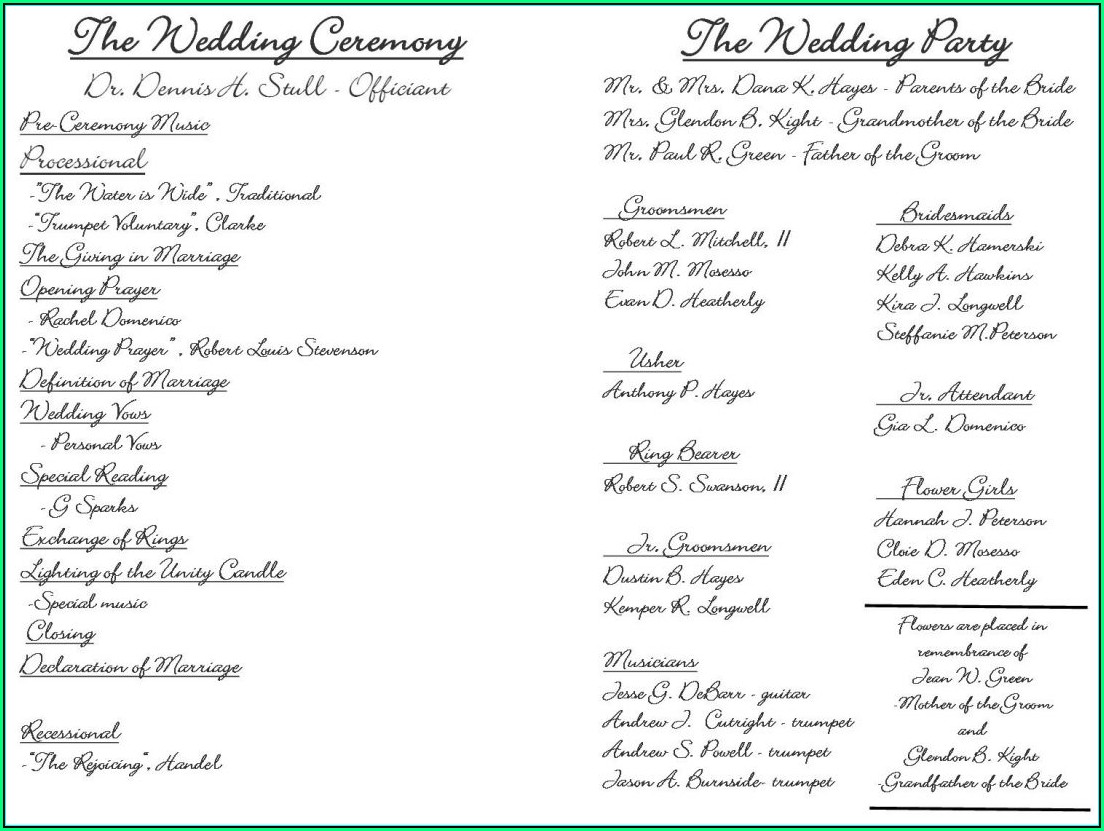 The Wedding Ceremony
Dr. Dennis H. Stull - Officiant
Pre-Ceremony Music
Processional
-"The Water is Wide", Traditional
-"Trumpet Voluntary", Clarke
The Giving in Marriage
Opening Prayer
- Rachel Domenico
-"Wedding Prayer", Robert Louis Stevenson
Definition of Marriage
Wedding Vows
- Personal Vows
Special Reading
- G Sparks
Exchange of Rings
Lighting of the Unity Candle
-Special music
Closing
Declaration of Marriage
Recessional
-"The Rejoicing", Handel
The Wedding Party
Mr. & Mrs. Dana K. Hayes - Parents of the Bride
Mrs. Glendon B. Kight - Grandmother of the Bride
Mr. Paul R. Green - Father of the Groom
Groomsmen
Robert L. Mitchell, II
John M. Mosesso
Evan D. Heatherly
Usher
Anthony P. Hayes
Ring Bearer
Robert S. Swanson, II
Jr. Groomsmen
Dustin B. Hayes
Kemper R. Longwell
Musicians
Jesse G. DeBarr - guitar
Andrew J. Cutright - trumpet
Andrew S. Powell - trumpet
Jason A. Burnside- trumpet
Bridesmaids
Debra K. Hamerski
Kelly A. Hawkins
Kira J. Longwell
Steffanie M.Peterson
Jr. Attendant
Gia L. Domenico
Flower Girls
Hannah J. Peterson
Cloie D. Mosesso
Eden C. Heatherly
Flowers are placed in
remembrance of
Jean W. Green
-Mother of the Groom
and
Glendon B. Kight
-Grandfather of the Bride